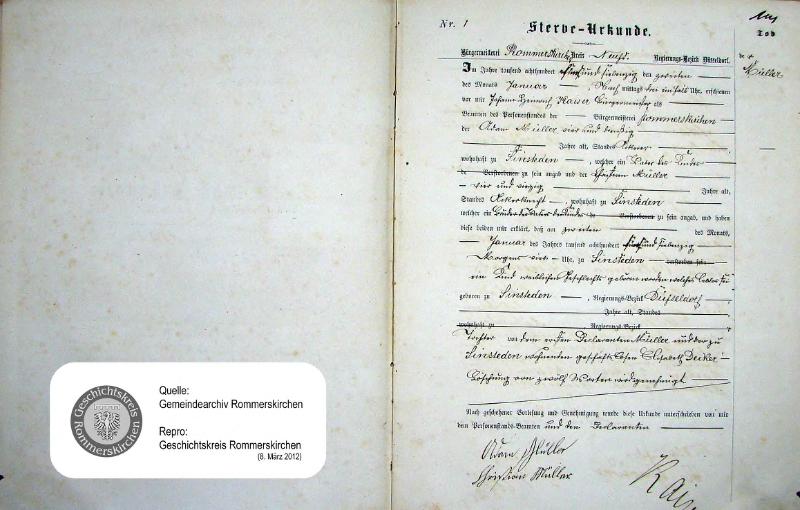 Nr. 1
Sterbe-Urkunde.
Bürgermeisterei Rommerskirchen Kreis Neuß. Regierungs-Bezirk Düsseldorf.
Im Jahre tausend achthundert fünf und siebenzig den zweiten
des Monats Januar —, Nach mittags drei ein halb Uhr, erschienen
vor mir Johann Heinrich Kaiser Bürgermeister als
Beamten des Personenstandes der — Bürgermeisterei Rommerskirchen
der Adam Müller vier und dreißig
Jahre alt, Standes Ackerer —,
wohnhaft zu Sinsteden —, welcher ein Vater des Kindes
de Verstorbenen zu sein angab und der Christian Müller
— vier und vierzig — Jahre alt,
Standes Ackerknecht —, wohnhaft zu Sinsteden —,
welcher ein Bruder des Vaters des Kindes de Verstorbenen zu sein angab, und haben
diese beiden mir erklärt, daß am zweiten — des Monats,
— Januar des Jahres tausend achthundert fünf und siebenzig —
Morgens vier — Uhr, zu Sinsteden — verstorben sei
ein Kind weiblichen Geschlechts geboren worden welches
geboren zu Sinsteden —, Regierungs-Bezirk Düsseldorf —,
Jahre alt, Standes
wohnhaft zu Regierungs-Bezirk
Tochter von dem ersten Declaranten Müller und der zu
Sinsteden wohnenden geschäftslosen Elisabeth Decker —
Löschung von zwölf Worten wird genehmigt —
Nach geschehener Vorlesung und Genehmigung wurde diese Urkunde unterschrieben von mir
dem Personenstands-Beamten und den Declaranten —
Adam Müller
Christian Müller
Kais
Tod
de r
Müller
Quelle:
Gemeindearchiv Rommerskirchen
Repro:
Geschichtskreis Rommerskirchen
(8. März 2012)
Geschichtskreis
Rommerskirchen